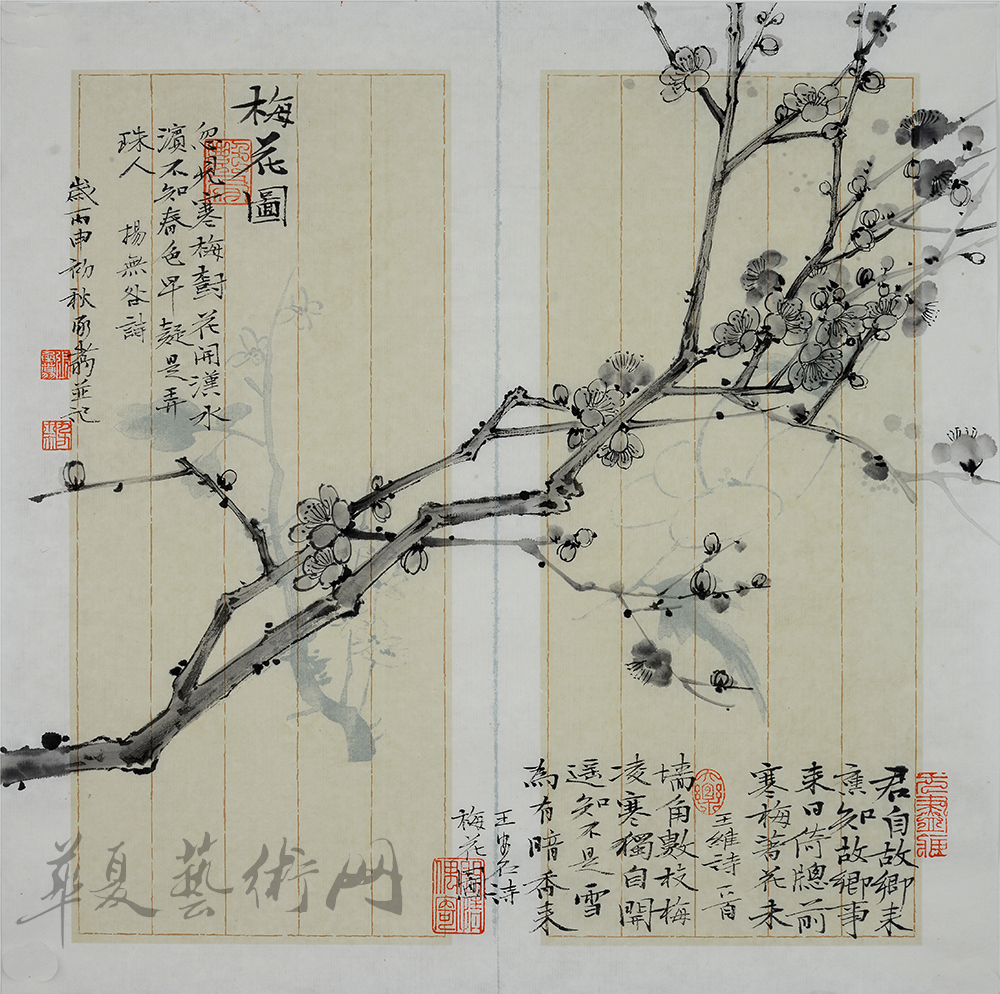 梅花圖
忽見寒梅對花開漢水
濱不知春色早疑是弄
珠人
揚無咎詩
歲丙申初秋
並記
君自故鄉來
應知故鄉事
來日倚牕前
寒梅著花未
王維詩一首
墻角數枝梅
凌寒獨自開
遥知不是雪
為有暗香来
王安石詩
梅花
華夏藝術网